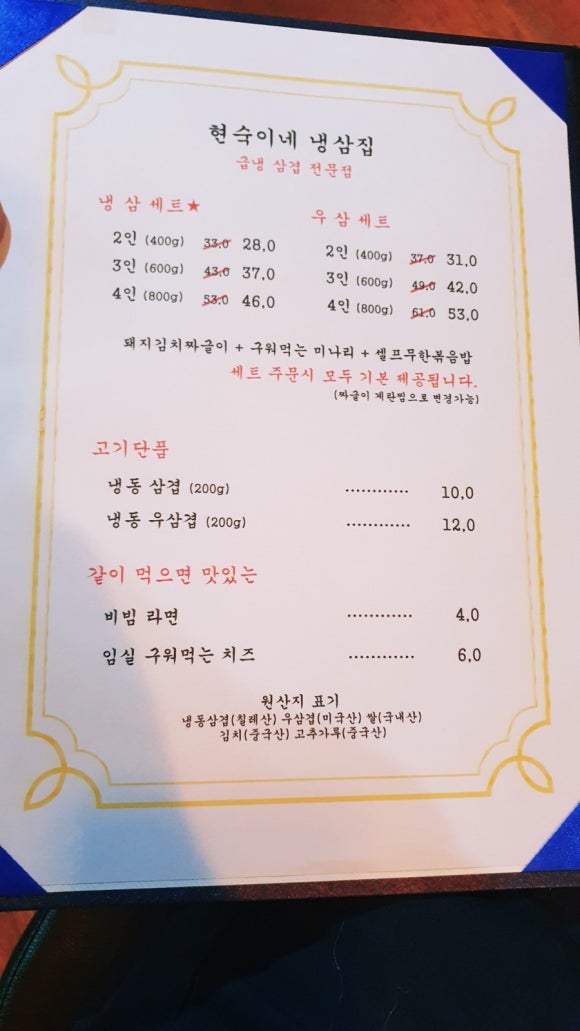 현숙이네 냉삼집
급냉 삼겹 전문점
냉 삼 세트★
2인 (400g) 33,0 28,0
3인 (600g) 43,0 37,0
4인 (800g) 53,0 46,0
우 삼 세트
2인 (400g) 37,0 31,0
3인 (600g) 49,0 42,0
4인 (800g) 61,0 53,0
돼지김치짜글이 + 구워먹는 미나리 + 셀프무한볶음밥
세트 주문시 모두 기본 제공됩니다.
(짜글이 계란찜으로 변경가능)
고기단품
냉동 삼겹 (200g) ............ 10,0
냉동 우삼겹 (200g) ............ 12,0
같이 먹으면 맛있는
비빔 라면 ............ 4,0
임실 구워먹는 치즈 ............ 6,0
원산지 표기
냉동삼겹(칠레산) 우삼겹(미국산) 쌀(국내산)
김치(중국산) 고추가루(중국산)